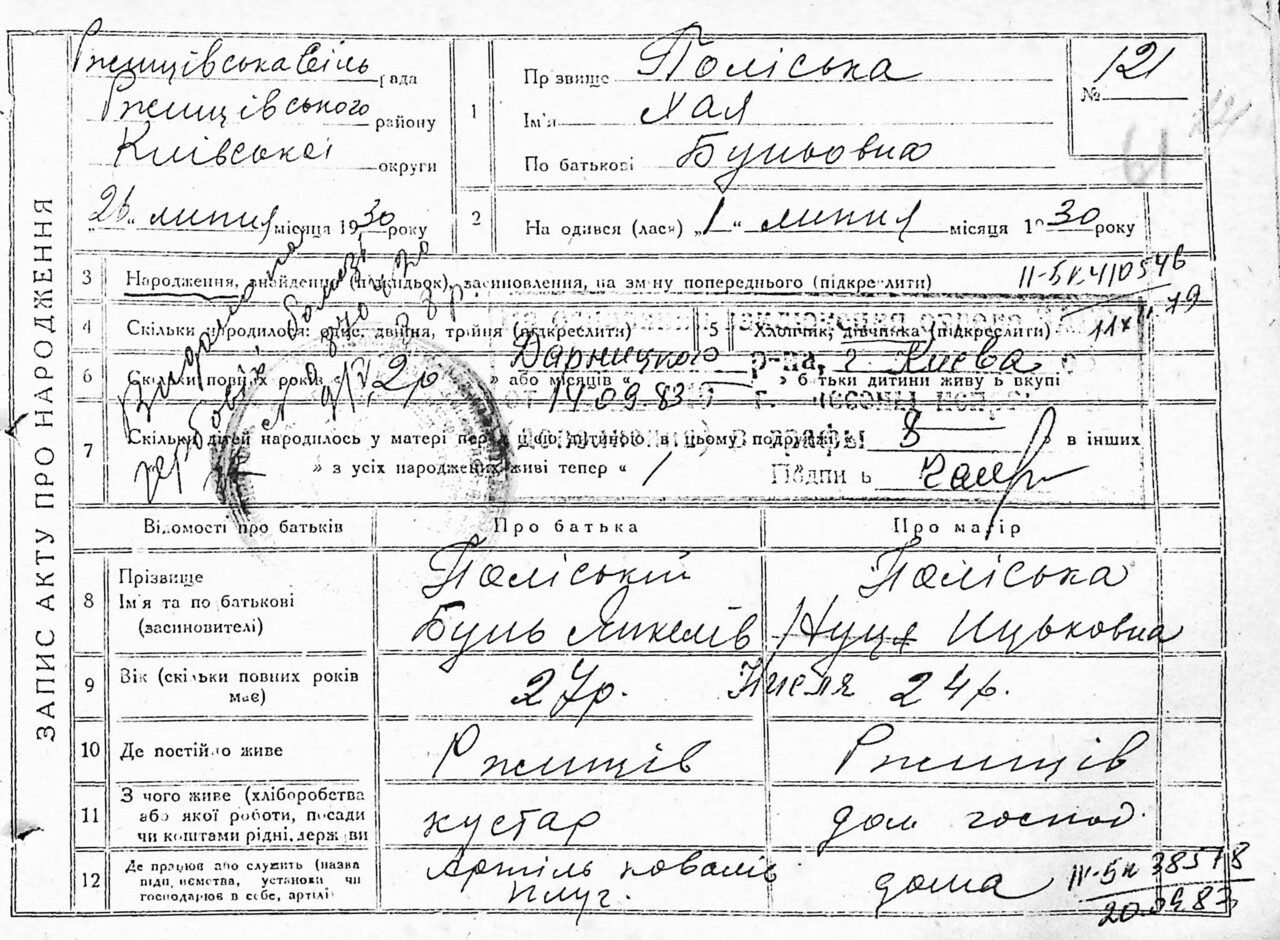 ЗАПИС АКТУ ПРО НАРОДЖЕННЯ
Ржищівська сіль рада
Ржищівського району
Київської округи
„26“ липня місяця 1930 року
1 Прізвище Поліська
Ім'я Хая
По батькові Буньовна
№ 121
61
2 На одився (лася) „1“ липня місяця 1930 року
3 Народження, знайдення (підкидьок), засиновлення, на зміну попереднього (підкреслити)
II-БК 410546
79
4 Скільки народилося: одне, двійня, трійня (підкреслити)
5 Хлопчик, дівчинка (підкреслити)
Дарницкого р-на, г. Киева
6 Скільки повних років « 2р » або місяців « » батьки дитини живуть вкупі
от 14.09.83 г.
7 Скільки дітей народилось у матері перед цією дитиною в цьому подружжі « 8 » в інших
» з усіх народжених живі тепер “ 1
Підпись
Відомості про батьків
Про батька
Про матір
8 Прізвище
Ім'я та по батькові
(засиновителі)
Поліський
Бунь
Поліська
Нуця Ицьковна
9 Вік (скільки повних років має)
27р.
Нисля 24р.
10 Де постійно живе
Ржищів
Ржищів
11 З чого живе (хліборобства
або якої роботи, посади
чи коштами рідні, держави
кустар
дом господ.
12 Де працює або служить (назва
підприємства, установи чи
господарює в себе, артілі
Артіль ковалів
плуг.
дома
III-БК 38578
20.09.83